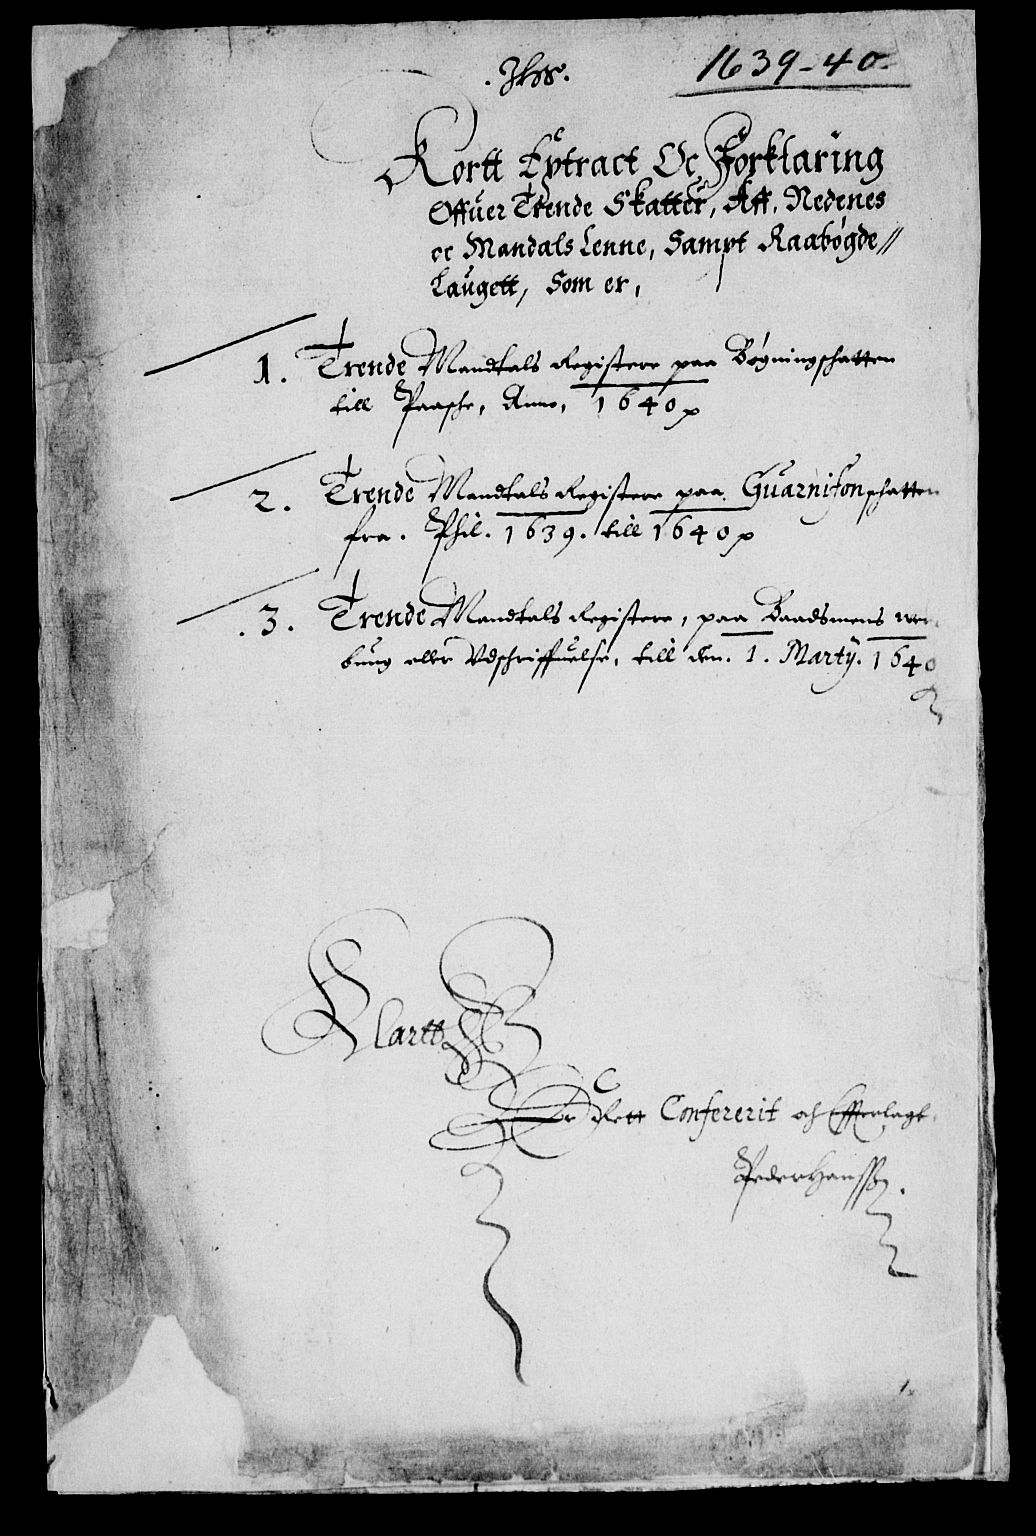 . Jhs.
1639-40.
Kortt Extract Oc Forklaring
Offuer Trende Skatter, Aff. Nedenes
oc Mandals Lenne, Sampt Raabøgde//
Laugett, Som er,
1. Trende Mandtals Registere paa Bøgningschatten
till Paasche, Anno, 1640
2. Trende Mandtals Registere paa. Guarnison schatten
fra. Phil. 1639. till 1640
.3. Trende Mandtals Registere, paa Baadsmens wer
bung eller Vdschriffuelse, till den. 1. Martÿ. 1640
Klartt
Er Rett Confererit och Efferlagt.
Peder Hanssøn.